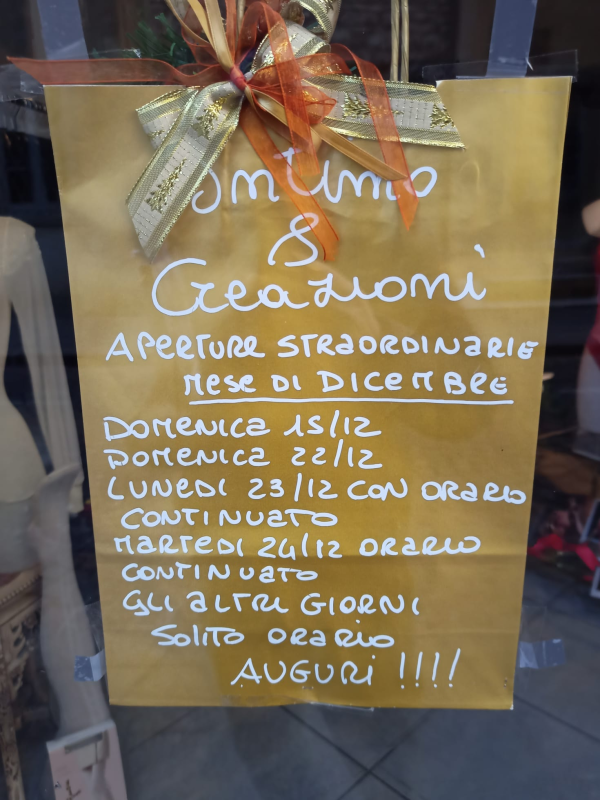 Intimo
&
Creazioni
APERTURE STRAORDINARIE
MESE DI DICEMBRE
DOMENICA 15/12
DOMENICA 22/12
LUNEDI 23/12 CON ORARIO
CONTINUATO
MARTEDI 24/12 ORARIO
CONTINUATO
GLI ALTRI GIORNI
SOLITO ORARIO
AUGURI !!!!